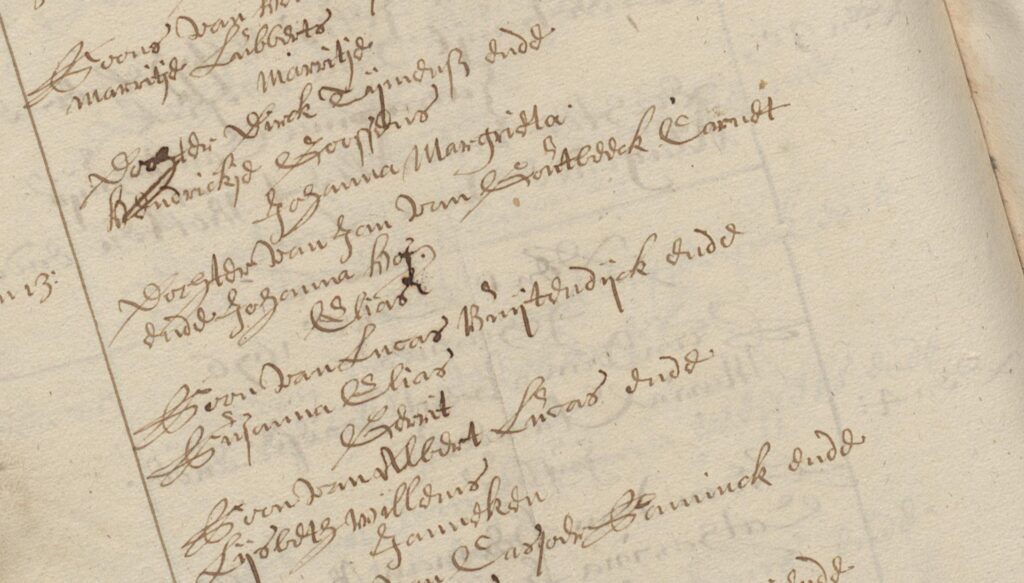 Soons van
Marritje Lubberts
Marritje
Dochter Dirck Tijmensz ende
Hendrickje Goossens
Johanna Margrieta
Dochter van Jan van Goutbeeck Cornet
ende Johanna
Elias
Soon van Lucas Buijtendijck ende
Susanna Elias
Gerrit
Soon van Albert Lucas ende
Lijsbeth Willems
Janneken
ende
13:
ende